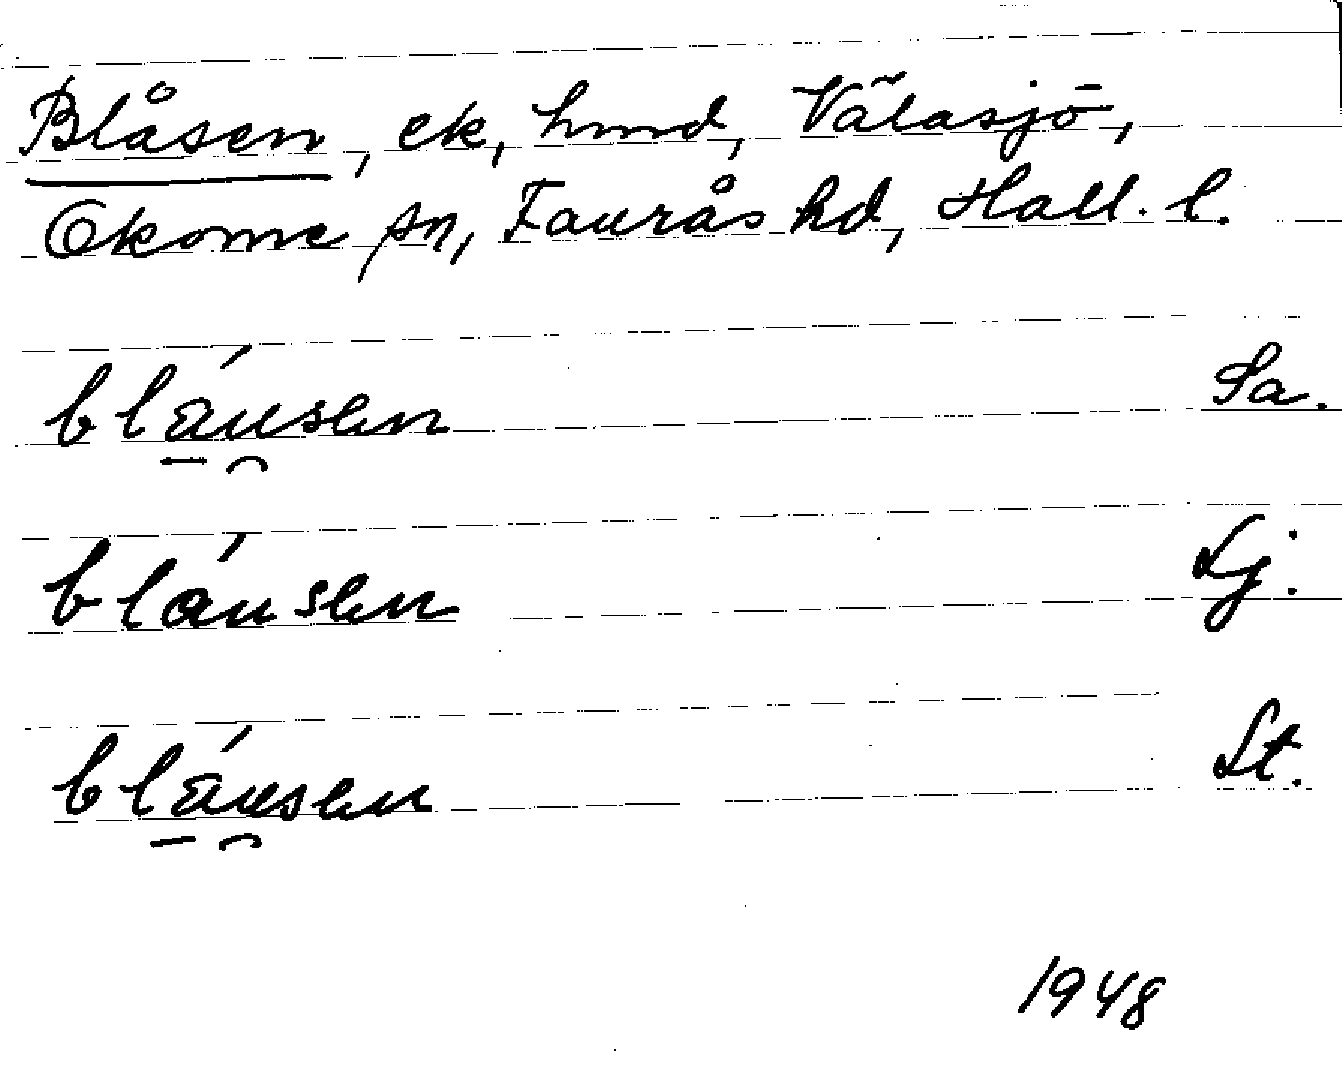 Blåsen, ek, hmd, Välasjö,
Okome sn, Faurås hd, Hall. l.
bláusen Sa.
bláusen Lj.
bláusen St.
1948